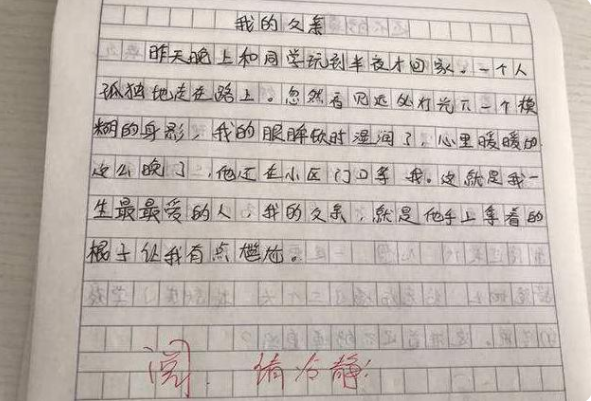 我的父亲
昨天晚上和同学玩到半夜才回家。一个人
孤独地走在路上。忽然看见远处灯光下一个模
糊的身影，我的眼眸顿时湿润了，心里暖暖的
这么晚了，他还在小区门口等我。这就是我一
生最最爱的人，我的父亲，就是他手上拿着的
棍子让我有点尴尬。
阅